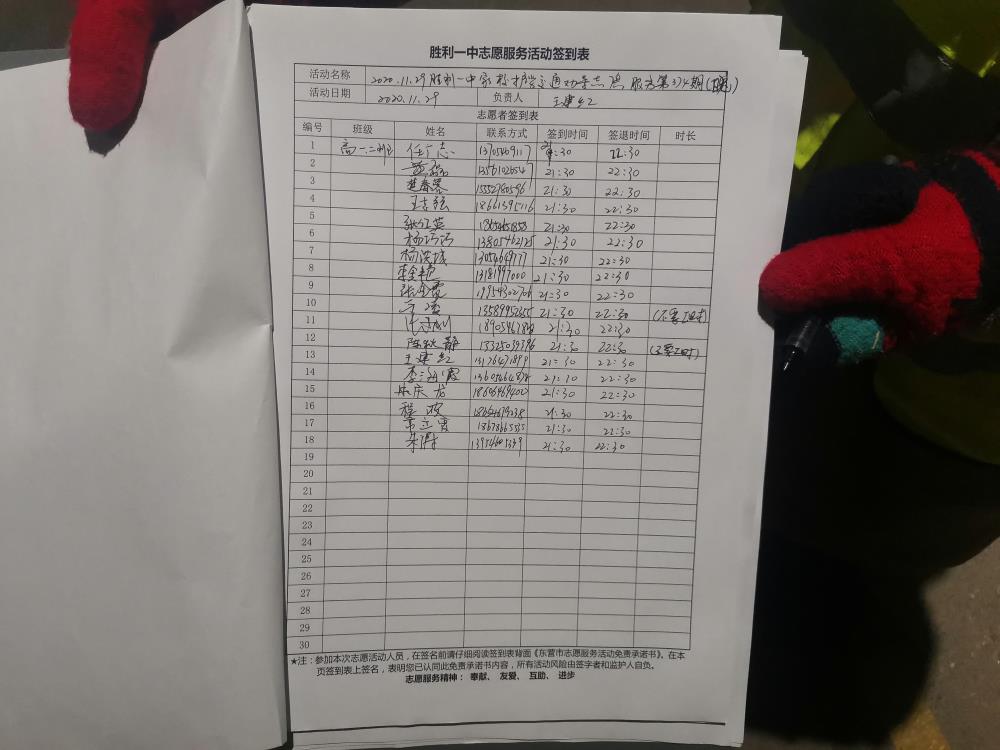 胜利一中志愿服务活动签到表
活动名称 2020.11.29胜利一中家校护学交通劝导志愿服务第374期(晚)
活动日期 2020.11.29 负责人 王建红
志愿者签到表
编号 班级 姓名 联系方式 签到时间 签退时间 时长
1 高一.二 任广志 13705469117 :30 22:30
2 21:30 22:30
3 21:30 22:30
4 王志强 18661395116 21:30 22:30
5 张红英 21:30 22:30
6 杨巧巧 13805462125 21:30 22:30
7 杨洪城 21:30 22:30
8 13181997000 21:30 22:30
9 19954302706 21:30 22:30
10 21:30 22:30 (不要工时)
11 21:30 22:30
12 陈秋静 13325039396 21:30 22:30 (不要工时)
13 王建红 21:30 22:30
14 李海霞 22:30
15 庆龙 18606469400 21:30 22:30
16 程波 21:30 22:30
17 21:30 22:30
18 13954605339 21:30 22:30
19
20
21
22
23
24
25
26
27
28
29
30
★注：参加本次志愿活动人员，在签名前请仔细阅读签到表背面《东营市志愿服务活动免责承诺书》。在本
页签到表上签名，表明您已认同此免责承诺书内容，所有活动风险由签字者和监护人自负。
志愿服务精神： 奉献、 友爱、 互助、 进步